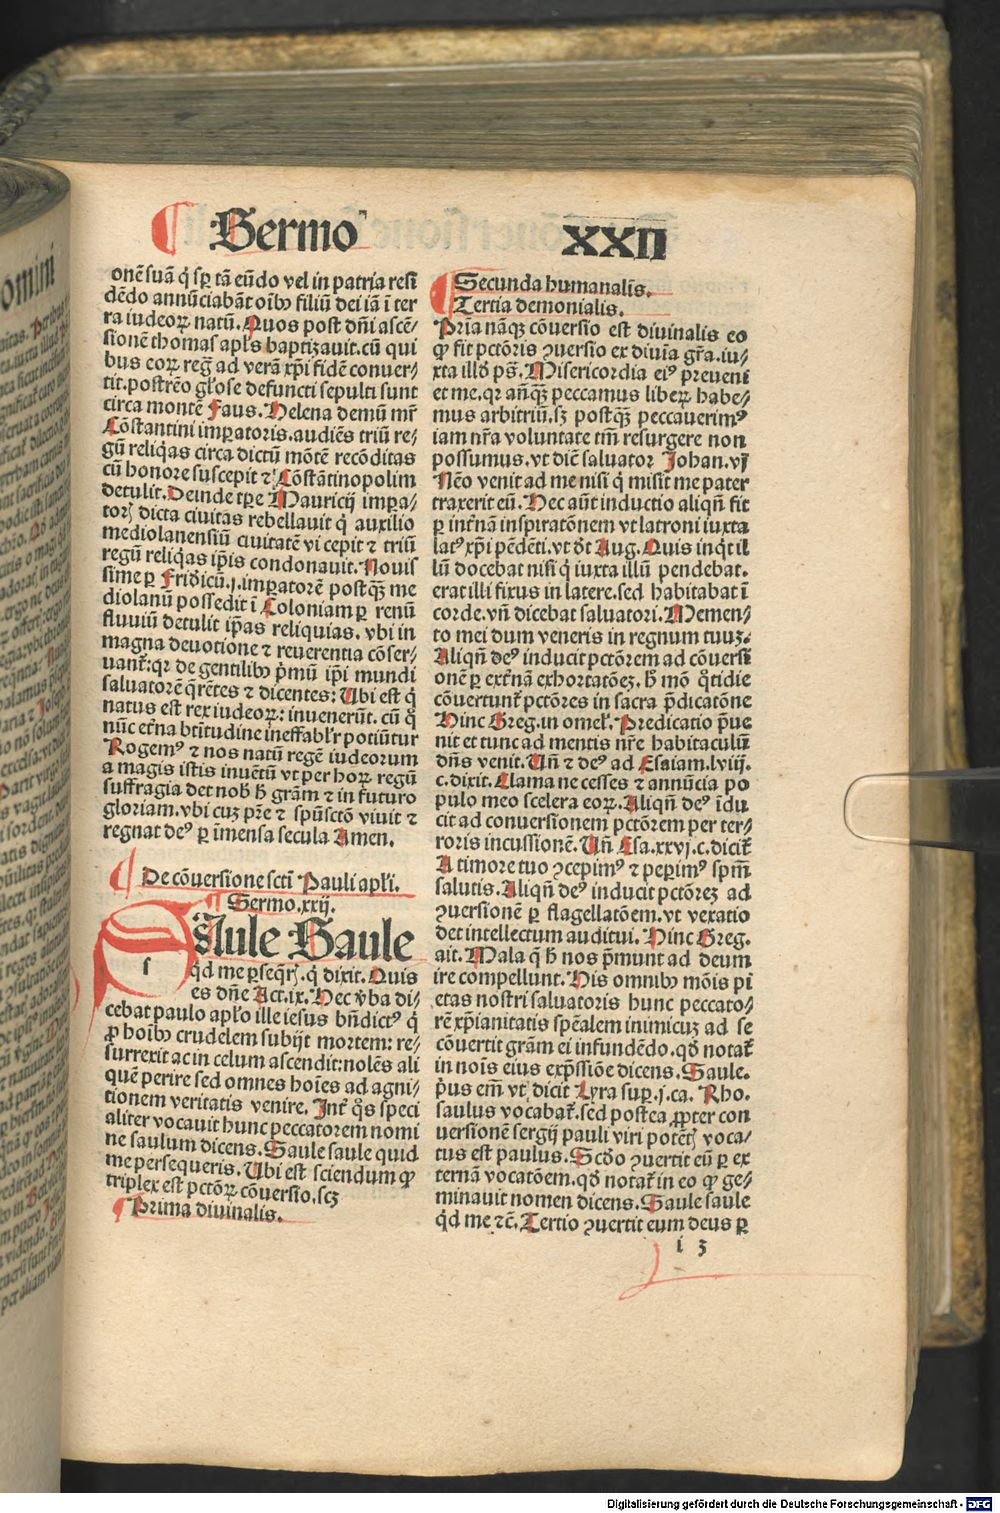 Sermo XXII
onē suā q̄ sp̄ tā eūdo vel in patria resi
dēdo annūciabāt oībꝰ filiū dei iā ī ter
ra iudeoꝝ natū. Quos post dn̄i ascē⸗
sionē thomas apl̄s baptizauit. cū qui
bus eoꝝ reḡ ad verā xp̄i fidē conuer⸗
tit. postrēo gl̄ose defuncti sepulti sunt
circa montē Faus. Helena demū mr̄
Cōstantini imꝑatoris. audiēs triū re⸗
gū reliq̄as circa dictū mōtē recōditas
cū honore suscepit ⁊ Cōstātinopolim
detulit. Deinde tꝑe Mauricij imꝑa⸗
torꝭ dicta ciuitas rebellauit q̄ auxilio
mediolanensiū ciuitatē vi cepit ⁊ triū
regū reliq̄as ip̄is condonauit. Nouis
sime ꝑ Fridicū.j. imꝑatorē postq̄ꝫ me
diolanū possedit ī Coloniam ꝑ renū
fluuiū detulit ip̄as reliquias. vbi in
magna deuotione ⁊ reuerentia cōser⸗
uant᷑: qꝛ de gentilibꝰ p̄mū ip̄i mundi
saluatorē q̄rētes ⁊ dicentes: Ubi est q̄
natus est rex iudeoꝝ: inuenerūt. cū q̄
nūc et̄na bt̄itudine ineffabl̓r potiūtur
Rogemꝰ ⁊ nos natū regē iudeorum
a magis istis inuētū vt per hoꝝ regū
suffragia det nob̄ h̄ grām ⁊ in futuro
gloriam. vbi cuꝫ pr̄e ⁊ sp̄uscto viuit ⁊
regnat deꝰ ꝑ īmensa secula Amen.
De cōuersione scti Pauli apl̓i.
Sermo.xxij.
SAule Saule
qͥd me ꝑseq̄rꝭ. q̄ dixit. Quis
es dn̄e Act.ix. Hec v̄ba di⸗
cebat paulo apl̓o ille iesus bn̄dictꝰ q̄
ꝓ hoībꝰ crudelem subijt mortem: re⸗
surrexit ac in celum ascendit: nolēs ali
quē perire sed omnes hoīes ad agni⸗
tionem veritatis venire. Int᷑ q̄s speci
aliter vocauit hunc peccatorem nomi
ne saulum dicens. Saule saule quid
me persequeris. Ubi est sciendum ꝙ
triplex est pctōꝝ cōuersio. scꝫ
Prima diuinalis.
Secunda humanalis.
Tertia demonialis.
Pria nāqꝫ cōuersio est diuinalis eo
ꝙ fit pctōris ꝯuersio ex diuīa gr̄a. iu⸗
xta illd̓ ps̄. Misericordia eiꝰ preueni
et me. qꝛ an̄q̄ꝫ peccamus liberꝝ habe⸗
mus arbitriū. sꝫ postq̄ꝫ peccauerimꝰ
iam nr̄a voluntate tm̄ resurgere non
possumus. vt dic̄ saluator Johan.vj
Nēo venit ad me nisi q̄ misit me pater
traxerit eū. Hec aūt inductio aliqn̄ fit
ꝑ int᷑nā inspiratōnem vt latroni iuxta
latꝰ xp̄i pēdēti. vt d̓t Aug. Quis inq̄t il
lū docebat nisi q̄ iuxta illū pendebat.
erat illi fixus in latere. sed habitabat ī
corde. vn̄ dicebat saluatori. Memen⸗
to mei dum veneris in regnum tuuꝫ.
Aliqn̄ deꝰ inducit pctōrem ad cōuersi
onē ꝑ ext᷑nā exhortatōeꝫ. h̄ mō q̄tidie
cōuertunt᷑ pctōres in sacra p̄dicatōne
Hinc Greg. in omel̓. Predicatio p̄ue
nit et tunc ad mentis nr̄e habitaculū
dn̄s venit. Un̄ ⁊ deꝰ ad Esaiam.lviij.
c. dixit. Clama ne cesses ⁊ annūcia po
pulo meo scelera eoꝝ. Aliqn̄ deꝰ īdu
cit ad conuersionem pctōrem per ter⸗
roris incussionē. Un̄ Esa.xxvj.c. dicit᷑
A timore tuo ꝯcepimꝰ ⁊ peꝑimꝰ spm̄
salutis. Aliqn̄ deꝰ inducit pctōreꝫ ad
ꝯuersionē ꝑ flagellatōem. vt vexatio
det intellectum auditui. Hinc Greg.
ait. Mala q̄ h̄ nos p̄munt ad deum
ire compellunt. His omnibꝰ mōis pi
etas nostri saluatoris hunc peccato⸗
rē xp̄ianitatis spēalem inimicuꝫ ad se
cōuertit grām ei infundēdo. qd̓ notat᷑
in noīs eius exp̄ssiōe dicens. Saule.
p̄us em̄ vt dicit Lyra suꝑ.j.ca. Rho.
saulus vocabat᷑. sed postea ꝓpter con
uersionē sergij pauli viri potētꝭ voca⸗
tus est paulus. Scd̓o ꝯuertit eū ꝑ ex
ternā vocatōem. qd̓ notat᷑ in eo ꝙ ge⸗
minauit nomen dicens. Saule saule
qͥd me ⁊c̄. Tertio ꝯuertit eum deus ꝑ
i 3
Digitalisierung gefördert durch die Deutsche Forschungsgemeinschaft - DFG